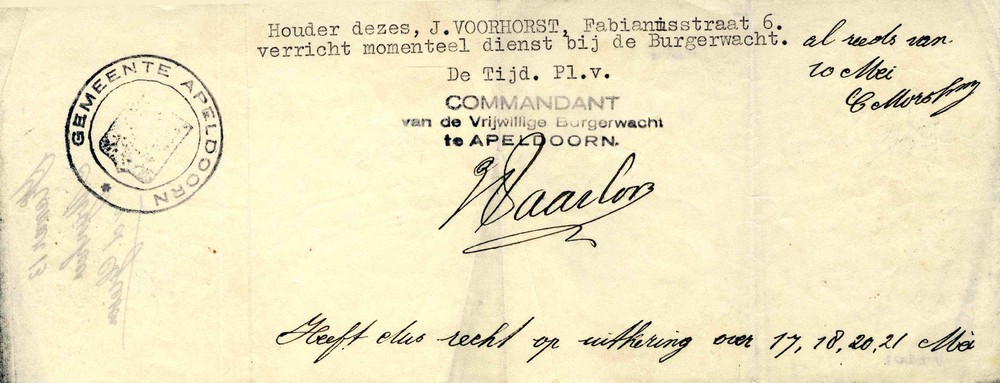 Houder dezes, J.VOORHORST, Fabianusstraat 6.
verricht momenteel dienst bij de Burgerwacht.
al reeds van
10 Mei
De Tijd. Pl.v.
COMMANDANT
van de Vrijwillige Burgerwacht
te APELDOORN.
GEMEENTE APELDOORN *
Heeft dus recht op uitkering over 17, 18, 20, 21 Mei